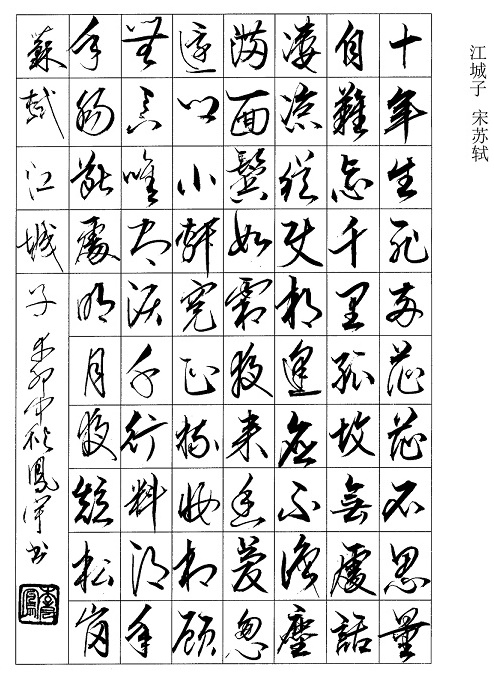 江城子 宋苏轼
十年生死两茫茫不思量
自難忘千里孤坟無處話
凄凉縱使相逢應不識塵
满面鬓如霜夜来幽夢忽
還鄉小軒窗正梳妝相顧
無言唯有泪千行料得年
年肠断處明月夜短松岗
蘇軾江城子 卯中秋鳳书